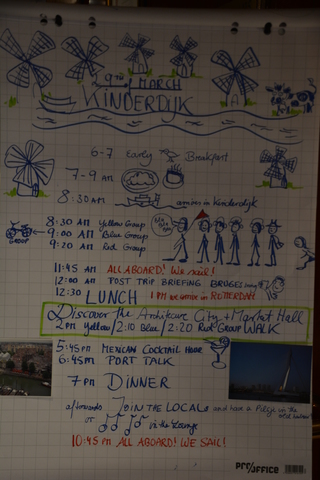 9TH MARCH
KINDERDIJK
6-7 Early Breakfast
7-9 AM
8:30 AM arrives in Kinderdijk
8:30 AM Yellow Group
9:00 AM Blue Group
9:20 AM Red Group
GROUP
11:45 AM ALL ABOARD! WE SAIL!
12:00 AM POST TRIP BRIEFING BRUGES
12:30 LUNCH 1 PM we arrive in ROTTERDAM
Discover The Architecture City + Market Hall
2PM Yellow / 2:10 Blue / 2:20 Red Group WALK
5:45 PM MEXICAN COCKTAIL HOUR
6:45 PM PORT TALK
7 PM DINNER
afterwards JOIN THE LOCALs and have a in the old harbour
or in the Lounge
10:45 PM ALL ABOARD! WE SAIL!
PRO/OFFICE